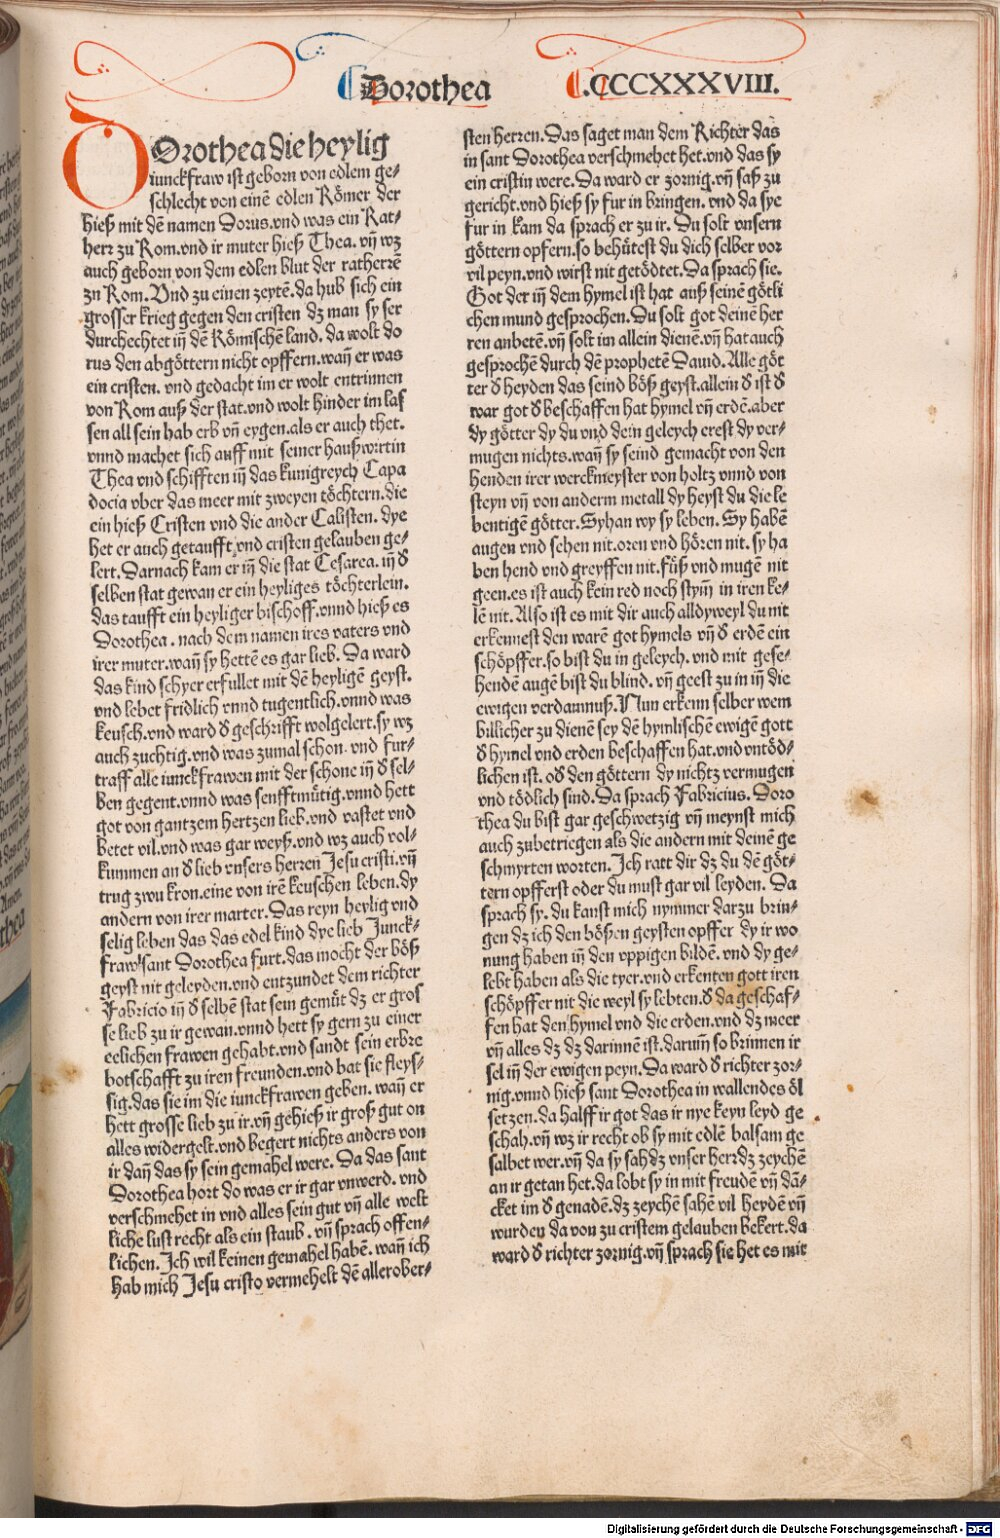 Dorothea
.CCCXXXVIII.
DOrothea die heylig
iunckfraw ist geborn von edlem ge-
schlecht von einē edlen Römer der
hieß mit dē namen Dorus.vnd was ein Rat-
herr zu Rom.vnd ir muter hieß Thea. vn̄ wz
auch geborn von dem edlen blut der ratherrē
zu Rom. Vnd zu einen zeytē.da hub sich ein
grosser krieg gegen den cristen dz man sy ser
durchechtet in̄ dē Römischē land. da wolt do
rus den abgöttern nicht opffern.wan̄ er was
ein cristen. vnd gedacht im er wolt entrinnen
von Rom auß der stat.vnd wolt hinder im las
sen all sein hab erb vn̄ eygen.als er auch thet.
vnnd machet sich auff mit seiner haußwirtin
Thea vnd schifften in̄ das kunigreych Capa
docia vber das meer mit zweyen töchtern.die
ein hieß Cristen vnd die ander Calisten. dye
het er auch getaufft vnd cristen gelauben ge-
lert. Darnach kam er in̄ die stat Cesarea. in̄ d̕
selben stat gewan er ein heyliges töchterlein.
das taufft ein heyliger bischoff.vnnd hieß es
Dorothea. nach dem namen ires vaters vnd
irer muter.wan̄ sy hettē es gar lieb. Da ward
das kind schyer erfullet mit dē heyligē geyst.
vnd lebet fridlich vnnd tugentlich.vnnd was
keusch.vnd ward d̕ geschrifft wolgelert.sy wz
auch zuchtig.vnd was zumal schon. vnd fur-
traff alle iunckfrawen mit der schone in̄ d̕ sel-
ben gegent.vnnd was senfftmütig.vnnd hett
got von gantzem hertzen lieb.vnd vastet vnd
betet vil.vnd was gar weyß.vnd wz auch vol-
kummen an d̕ lieb vnsers herren Jesu cristi.vn̄
trug zwu kron.eine von irē keuschen leben.dy
andern von irer marter.Das reyn heylig vnd
selig leben das das edel kind dye lieb Junck-
fraw sant Dorothea furt.das mocht der böß
geyst nit geleyden.vnd entzundet dem richter
Fabricio in̄ d̕ selbē stat sein gemüt dz er gros
se lieb zu ir gewan.vnnd hett sy gern zu einer
eelichen frawen gehabt.vnd sandt sein erbre
botschafft zu iren freunden.vnd bat sie fleys-
sig.das sie im die iunckfrawen geben. wan̄ er
hett grosse lieb zu ir.vn̄ gehieß ir groß gut on
alles widergelt.vnd begert nichts anders von
ir dan̄ das sy sein gemahel were. Da das sant
Dorothea hort do was er ir gar vnwerd. vnd
verschmehet in vnd alles sein gut vn̄ alle welt
liche lust recht als ein staub. vn̄ sprach offen-
lichen. Ich wil keinen gemahel habē. wan̄ ich
hab mich Jesu cristo vermehelt dē allerober-
sten herren.Das saget man dem Richter das
in sant Dorothea verschmehet het.vnd das sy
ein cristin were. Da ward er zornig.vn̄ saß zu
gericht.vnd hieß sy fur in bringen. vnd da sye
fur in kam da sprach er zu ir. Du solt vnsern
göttern opfern.so behütest du dich selber vor
vil peyn.vnd wirst nit getödtet.Da sprach sie.
Got der in̄ dem hymel ist hat auß seinē götli
chen mund gesprochen.Du solt got deinē her
ren anbetē.vn̄ solt im allein dienē.vn̄ hat auch
gesprochē durch dē prophetē Dauid. Alle göt
ter d̕ heyden das seind böß geyst.allein d̕ ist d̕
war got d̕ beschaffen hat hymel vn̄ erdē.aber
dy götter dy du vnd dein geleych erest dy ver-
mugen nichts.wan̄ sy seind gemacht von den
henden irer werckmeyster von holtz vnnd von
steyn vn̄ von anderm metall dy heyst du die le
bentigē götter. Syhan wy sy leben. Sy habē
augen vnd sehen nit.oren vnd hören nit. sy ha
ben hend vnd greyffen nit.füß vnd mugē nit
geen.es ist auch kein red noch stym̄ in iren ke-
lē nit. Also ist es mit dir auch alldyweyl du nit
erkennest den warē got hymels vn̄ d̕ erdē ein
schöpffer.so bist du in geleych. vnd mit gese-
hendē augē bist du blind. vn̄ geest zu in in̄ die
ewigen verdamnuß. Nun erkenn selber wem
billicher zu dienē sey dē hymlischē ewigē gott
d̕ hymel vnd erden beschaffen hat.vnd vntöd-
lichen ist. od̕ den göttern dy nichtz vermugen
vnd tödlich sind. Da sprach Fabricius. Doro
thea du bist gar geschwetzig vn̄ meynst mich
auch zubetriegen als die andern mit deinē ge
schmyrten worten. Ich ratt dir dz du dē göt-
tern opfferst oder du must gar vil leyden. Da
sprach sy. du kanst mich nymmer darzu brin-
gen dz ich den bößen geysten opffer dy ir wo
nung haben in̄ den vppigen bildē. vnd dy ge-
lebt haben als die tyer.vnd erkenten gott iren
schöpffer nit die weyl sy lebten.d̕ da geschaf-
fen hat den hymel vnd die erden.vnd dz meer
vn̄ alles dz dz darinnē ist.darum̄ so brinnen ir
sel in̄ der ewigen peyn. Da ward d̕ richter zor-
nig.vnnd hieß sant Dorothea in wallendes öl
setzen.da halff ir got das ir nye keyn leyd ge
schah.vn̄ wz ir recht ob sy mit edlē balsam ge
salbet wer.vn̄ da sy sah dz vnser herr dz zeychē
an ir getan het.da lobt sy in mit freudē vn̄ dā-
cket im d̕ genadē.dz zeychē sahē vil heydē vn̄
wurden da von zu cristem gelauben bekert.da
ward d̕ richter zornig.vn̄ sprach sie het es mit
Digitalisierung gefördert durch die Deutsche Forschungsgemeinschaft - DFG